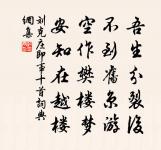 吾生分裂後
不到舊京游
空作樊楼梦
安知在越楼
刘克庄即事十首詞典
網集